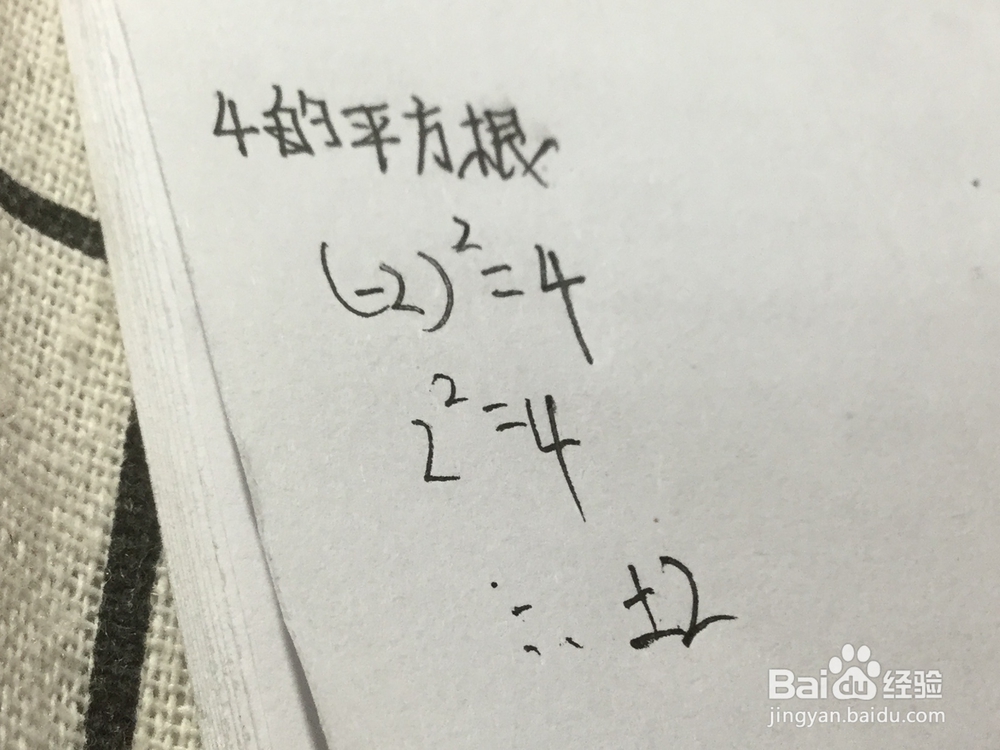 4的平方根
(-2)²=4
2²=4
∴ ±2
Baidu经验
jingyan.baidu.com